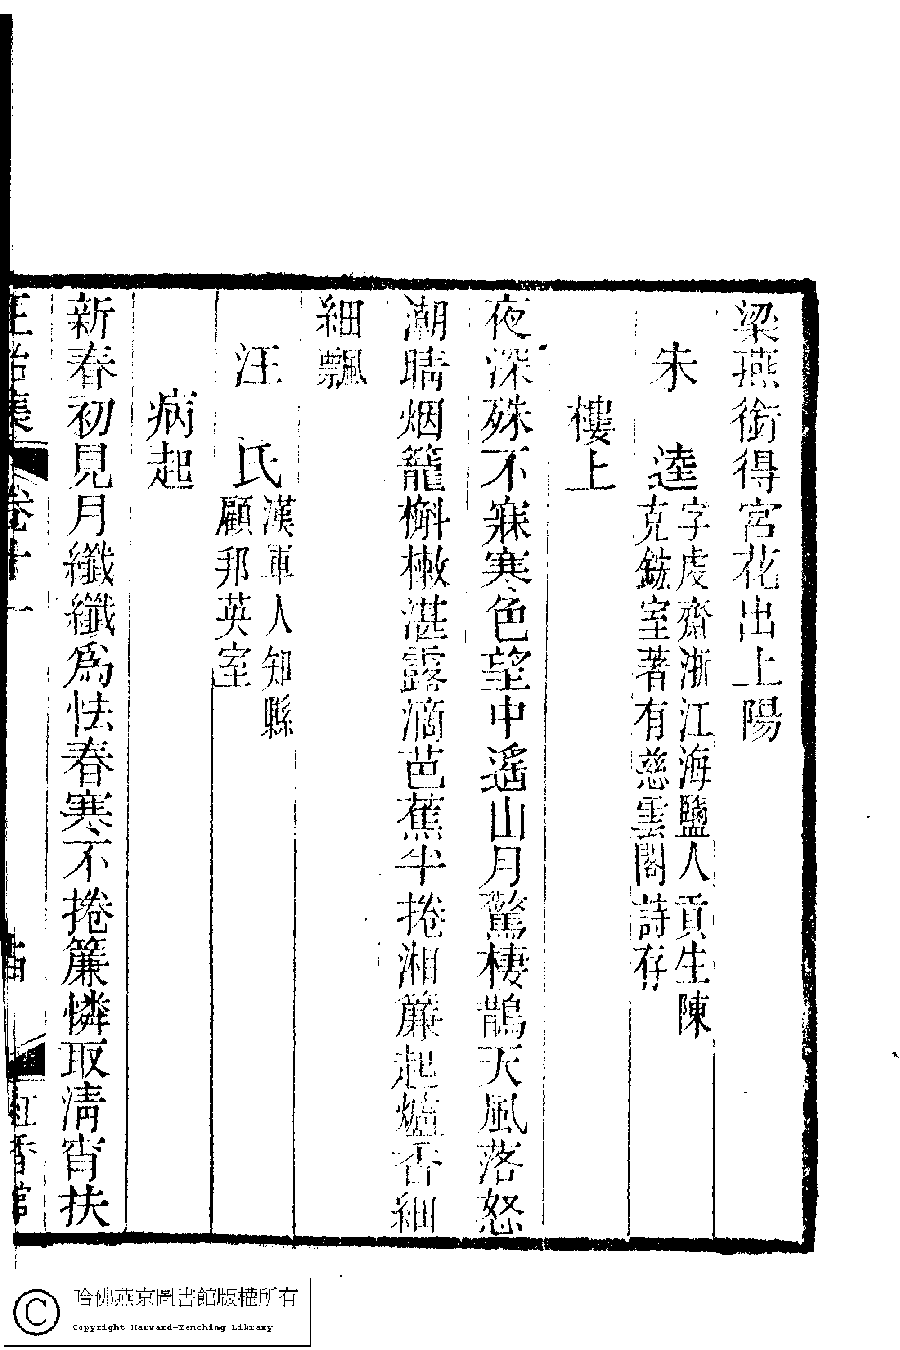 梁燕銜得宮花出上陽
朱逵
字虔齋浙江海鹽人貢生陳
克鋐室著有慈雲閣詩存
樓上
夜深殊不寐寒色望中遙山月驚棲鵲天風落怒
潮晴烟籠槲樕湛露滴芭蕉半捲湘簾起爐香細
細飄
汪氏
漢軍人知縣
顧邦英室
病起
新春初見月纖纖爲怯春寒不捲簾憐取清宵扶
正始集 卷十一 紅香館
哈佛燕京圖書館版權所有
Copyright Harvard-Yenching Library